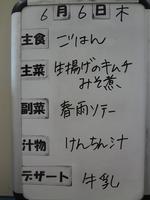 6月6日 木
主食 ごはん
主菜 生揚げのキムチ
みそ煮
副菜 春雨ソテー
汁物 けんちん汁
デザート 牛乳